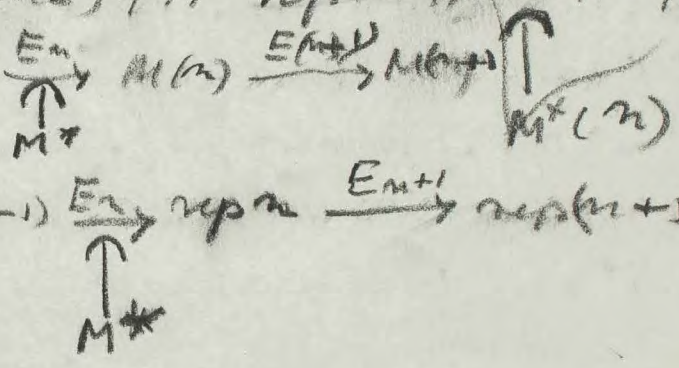 En → M(n) E(n+1) → M(n+1)
M* M*(n)
-1) En → rep n En+1 → rep(n+1
M**